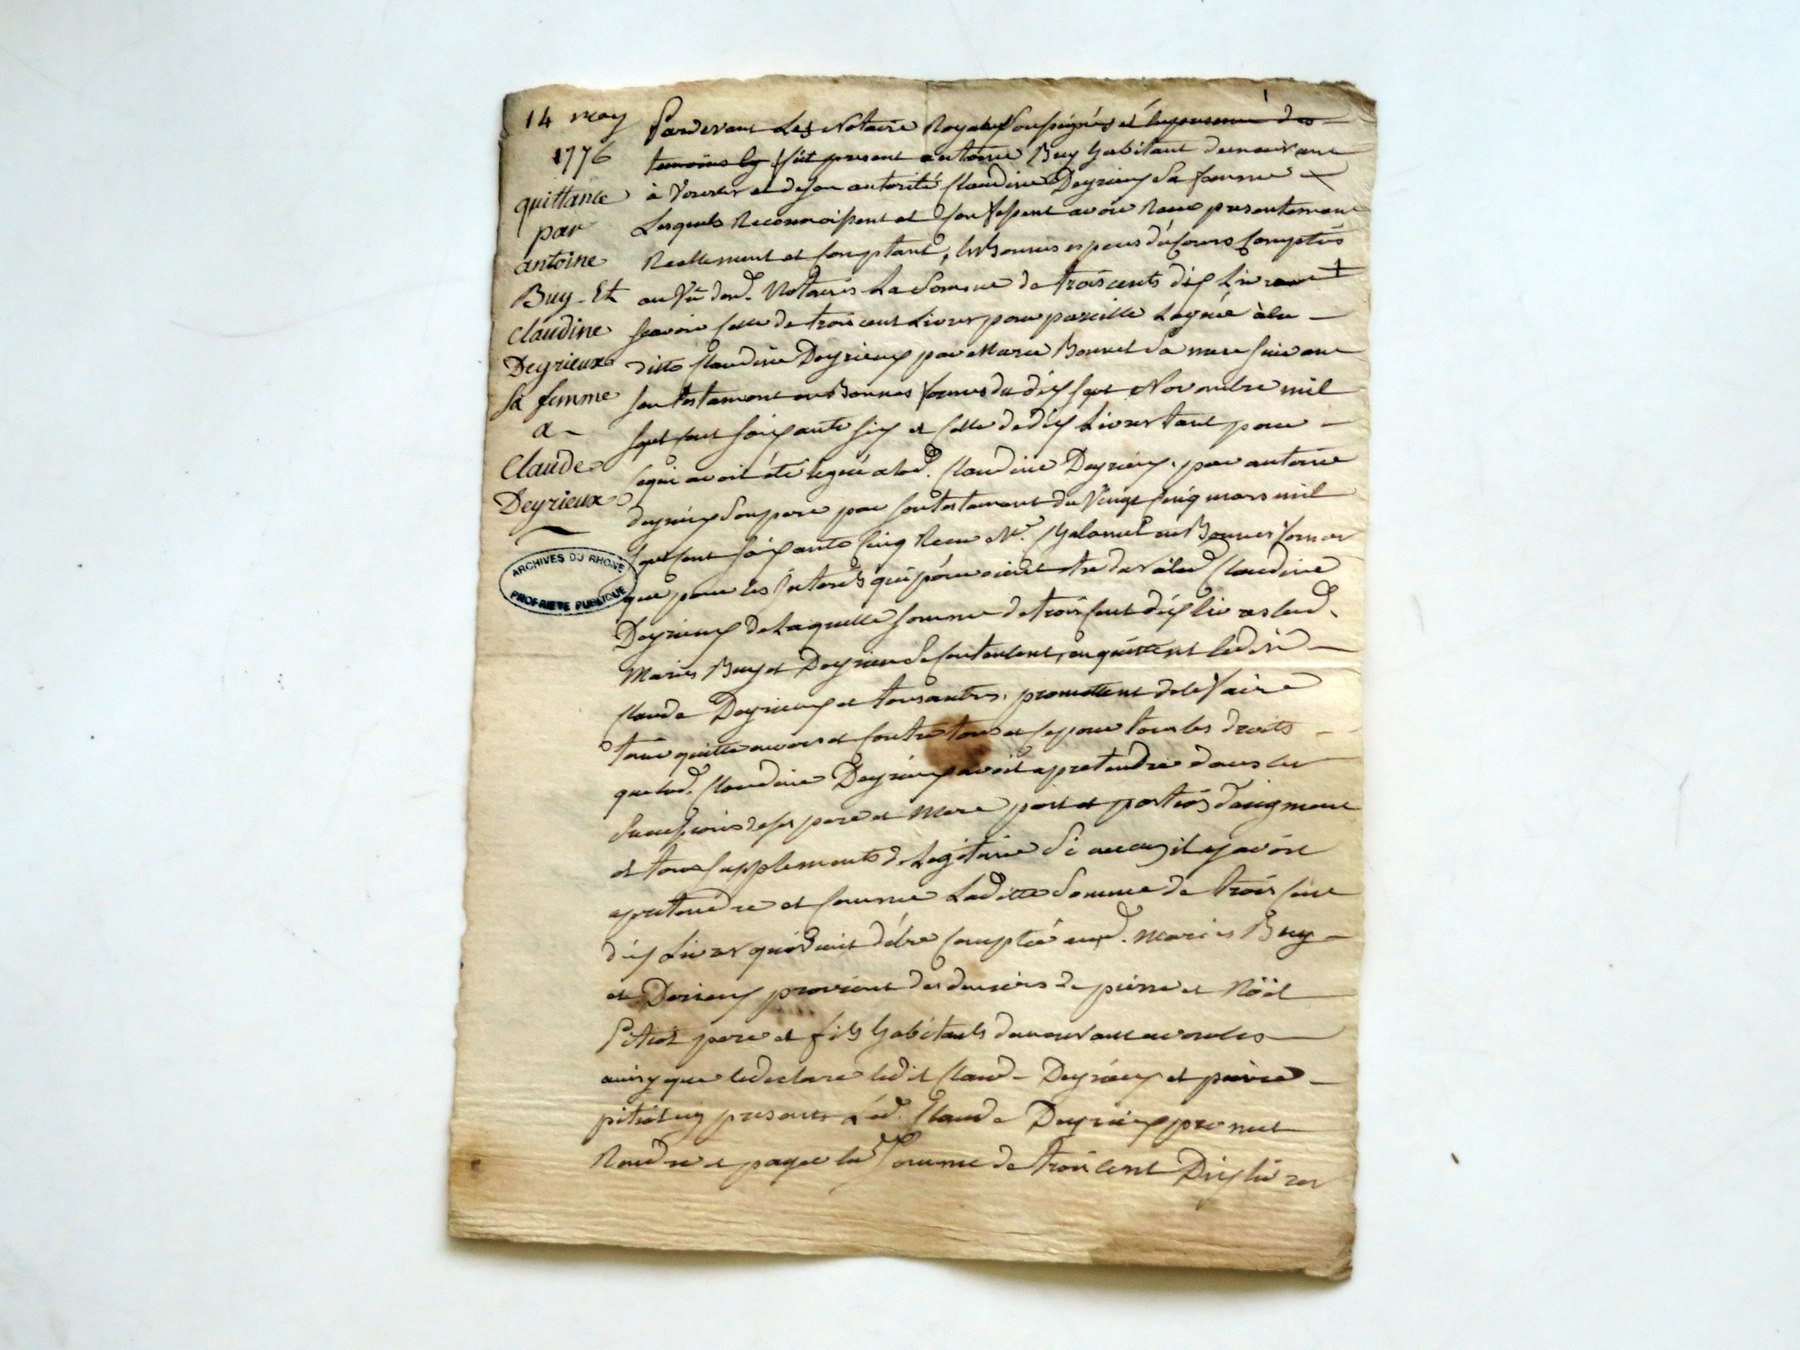 14 may
1776
quittance
par
antoine
Buy Et
Claudine
Deyrieux
sa femme
a
Claude
Deyrieux
ARCHIVES DU RHONE
PROPRIETE PUBLIQUE
Pardevant Les Notaire Royaux soussignés et en presence des
temoins fût present antoine Buy habitant demeurant
à et de son autorité Claudine Deyrieux Sa femme
Lesquels Reconnoissent et Confessent avoir Receu presentement
Reellement et Comptant, en Bonnes especes du Cours Comptés
au Vû desd. Notaires La Somme de trois cents dix Livres
sçavoir celle de trois cent Livres pour pareille Leguée à la
ditte Claudine Deyrieux par Marie Bonnet Sa mere suivant
son testament en Bonnes formes du dix sept Novembre mil
sept cent soixante six et celle de dix Livres tant pour
ce qui avoit été legué a lad. Claudine Deyrieux par antoine
deyrieux Son pere par son testament du Vingt Cinq mars mil
sept cent soixante Cinq Receu Me. en Bonnes formes
que pour les jnterêts qui pouvoient etre dus à lad. Claudine
Deyrieux de Laquelle somme de trois cent dix livres lesd.
Mariés Buy et Deyrieux se contentent, en quittent ledit
Claude Deyrieux et tous autres, promettent de le faire
tenir quitte envers et contre tous et ce pour tous les droits
que lad. Claudine Deyrieux avoit a pretendre dans les
Successions de ses pere et Mere part et portions d'augment
et tous supplements de Legitime Si aucun il y avoit
a pretendre et comme Laditte Somme de trois Cent
dix Livres qui Vient d'être Comptée aud. Mariés Buy
et Derieux provient des deniers de pierre et Nöel
Pitiot pere et fils habitants demeurant
ainsy que le declare ledit Claude Deyrieux et pierre
pitiot icy present Led. Claude Deyrieux promet
Rendre et payer la Somme de trois cent Dix livres